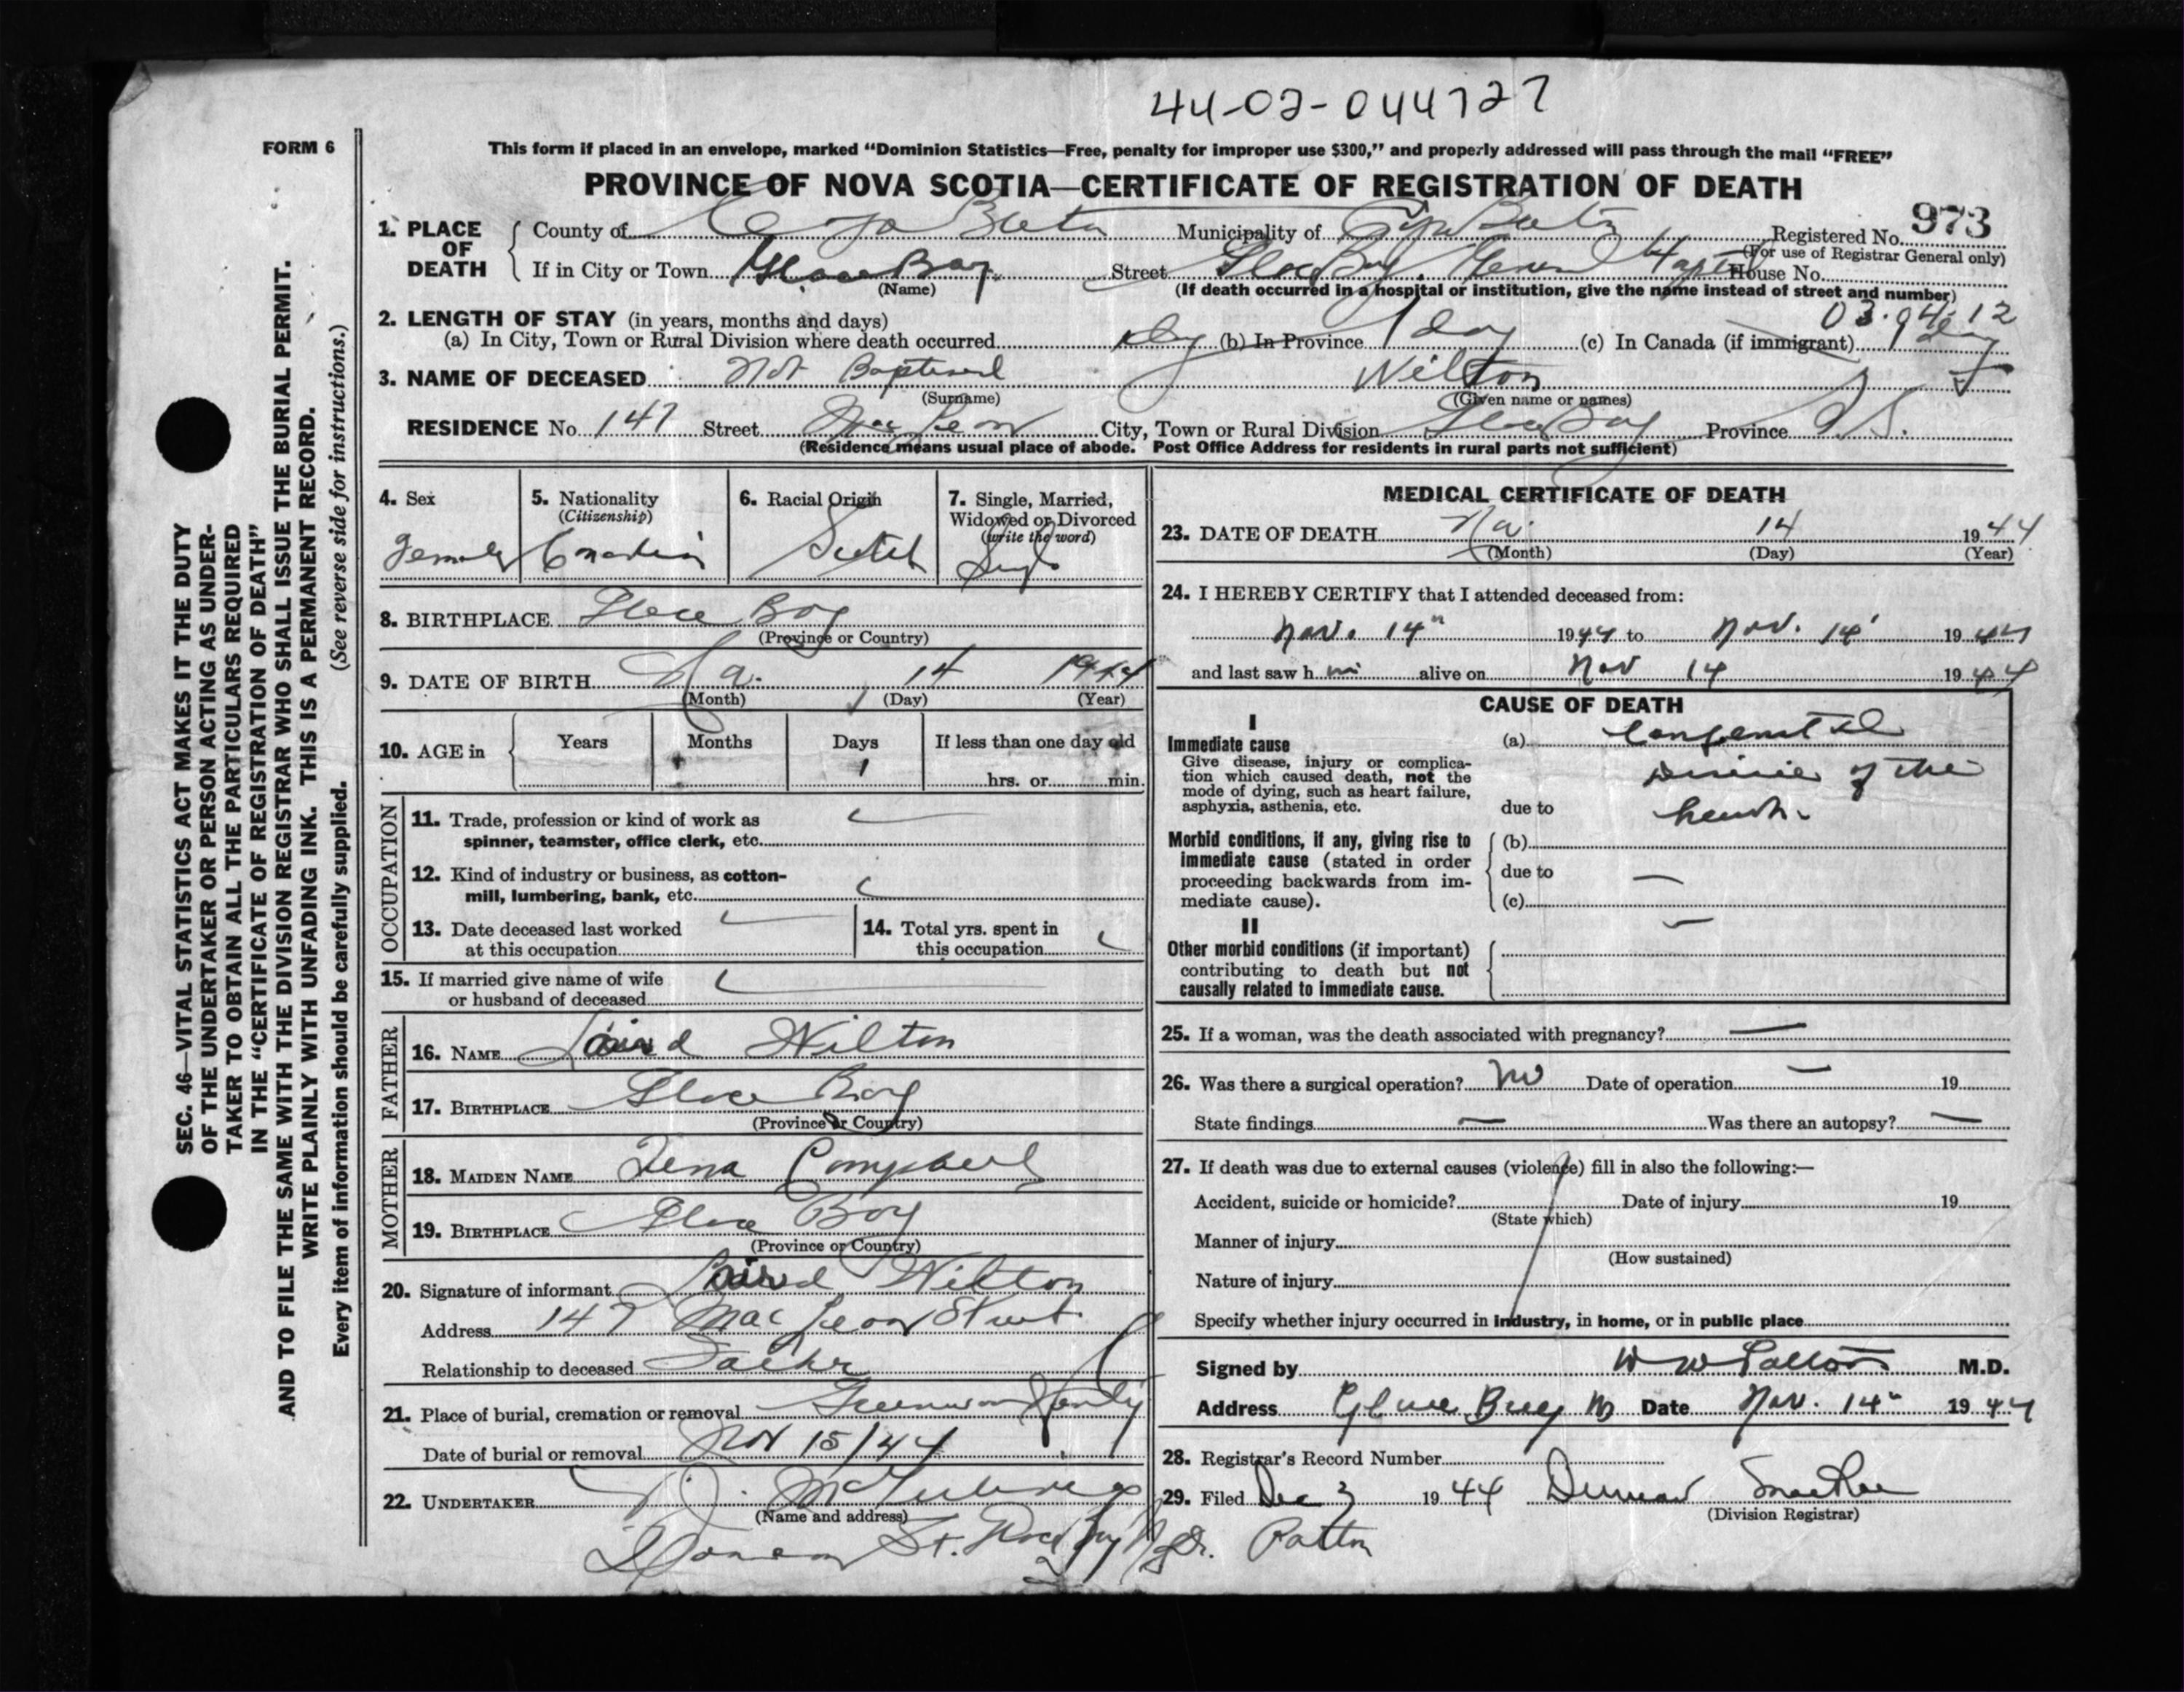 44-02-044727
FORM 6
This form if placed in an envelope, marked “Dominion Statistics—Free, penalty for improper use $300,” and properly addressed will pass through the mail “FREE”
PROVINCE OF NOVA SCOTIA—CERTIFICATE OF REGISTRATION OF DEATH
1. PLACE OF DEATH County of Cape Breton Municipality of Cape Breton Registered No. 973
(For use of Registrar General only)
If in City or Town Glace Bay Street Glace Bay General Hospital House No.
(Name) (If death occurred in a hospital or institution, give the name instead of street and number)
03.94.12
2. LENGTH OF STAY (in years, months and days)
(a) In City, Town or Rural Division where death occurred day (b) In Province 1 day (c) In Canada (if immigrant) 1 day
3. NAME OF DECEASED Not Baptised Wilton
(Surname) (Given name or names)
RESIDENCE No. 147 Street MacLean City, Town or Rural Division Glace Bay Province N.S.
(Residence means usual place of abode. Post Office Address for residents in rural parts not sufficient)
4. Sex Female
5. Nationality (Citizenship) Canadian
6. Racial Origin Scotch
7. Single, Married, Widowed or Divorced (write the word) Single
8. BIRTHPLACE Glace Bay
(Province or Country)
9. DATE OF BIRTH 14 1944
(Month) (Day) (Year)
10. AGE in Years Months Days If less than one day old
1 hrs. or min.
OCCUPATION
11. Trade, profession or kind of work as spinner, teamster, office clerk, etc.
12. Kind of industry or business, as cotton-mill, lumbering, bank, etc.
13. Date deceased last worked at this occupation
14. Total yrs. spent in this occupation
15. If married give name of wife or husband of deceased
FATHER
16. NAME Laird Wilton
17. BIRTHPLACE Glace Bay
(Province or Country)
MOTHER
18. MAIDEN NAME Tena Campbell
19. BIRTHPLACE Glace Bay
(Province or Country)
20. Signature of informant Laird Wilton
Address 147 MacLean Street
Relationship to deceased Father
21. Place of burial, cremation or removal Greenwood
Date of burial or removal Nov 15/44
22. UNDERTAKER
(Name and address)
St. Glace Bay
MEDICAL CERTIFICATE OF DEATH
23. DATE OF DEATH 14 1944
(Month) (Day) (Year)
24. I HEREBY CERTIFY that I attended deceased from:
Nov. 14" 1944 to Nov. 14' 1944
and last saw h im alive on Nov 14 1944
CAUSE OF DEATH
I
Immediate cause
Give disease, injury or complication which caused death, not the mode of dying, such as heart failure, asphyxia, asthenia, etc.
(a) Congenital
Disease of the
due to heart.
Morbid conditions, if any, giving rise to immediate cause (stated in order proceeding backwards from immediate cause).
(b)
due to —
(c)
II —
Other morbid conditions (if important) contributing to death but not causally related to immediate cause.
25. If a woman, was the death associated with pregnancy? —
26. Was there a surgical operation? No Date of operation — 19
State findings — Was there an autopsy? —
27. If death was due to external causes (violence) fill in also the following:—
Accident, suicide or homicide? Date of injury 19
(State which)
Manner of injury
(How sustained)
Nature of injury
Specify whether injury occurred in industry, in home, or in public place
Signed by W W Patton M.D.
Address Glace Bay Date Nov. 14" 1944
28. Registrar's Record Number
29. Filed Dec 3 1944 Duncan MacRae
(Division Registrar)
Dr. Patton
SEC. 46—VITAL STATISTICS ACT MAKES IT THE DUTY
OF THE UNDERTAKER OR PERSON ACTING AS UNDER-
TAKER TO OBTAIN ALL THE PARTICULARS REQUIRED
IN THE “CERTIFICATE OF REGISTRATION OF DEATH”
AND TO FILE THE SAME WITH THE DIVISION REGISTRAR WHO SHALL ISSUE THE BURIAL PERMIT.
WRITE PLAINLY WITH UNFADING INK. THIS IS A PERMANENT RECORD.
Every item of information should be carefully supplied. (See reverse side for instructions.)